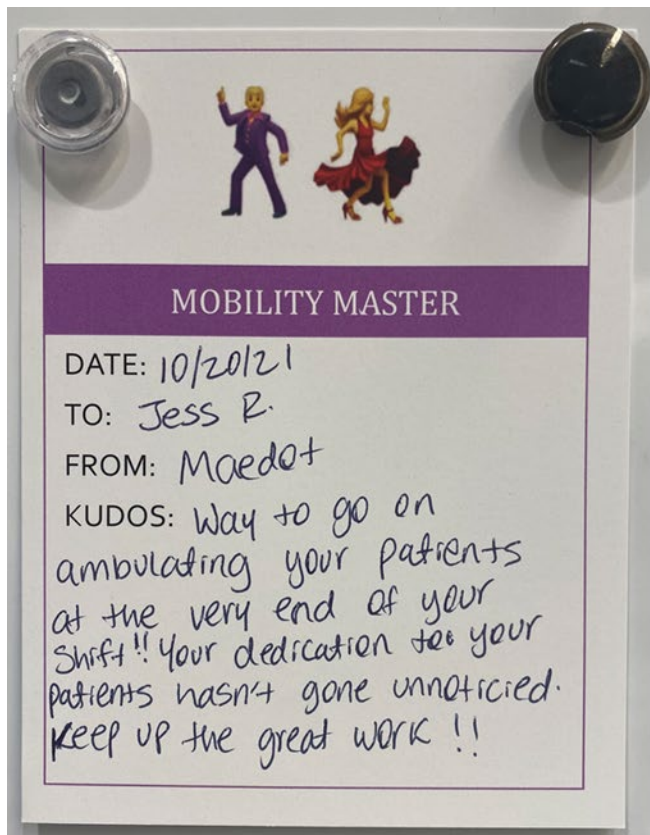 MOBILITY MASTER
DATE: 10/20/21
TO: Jess R.
FROM: Maedot
KUDOS: Way to go on
ambulating your patients
at the very end of your
shift!! Your dedication to your
patients hasn't gone unnoticied.
Keep up the great work !!